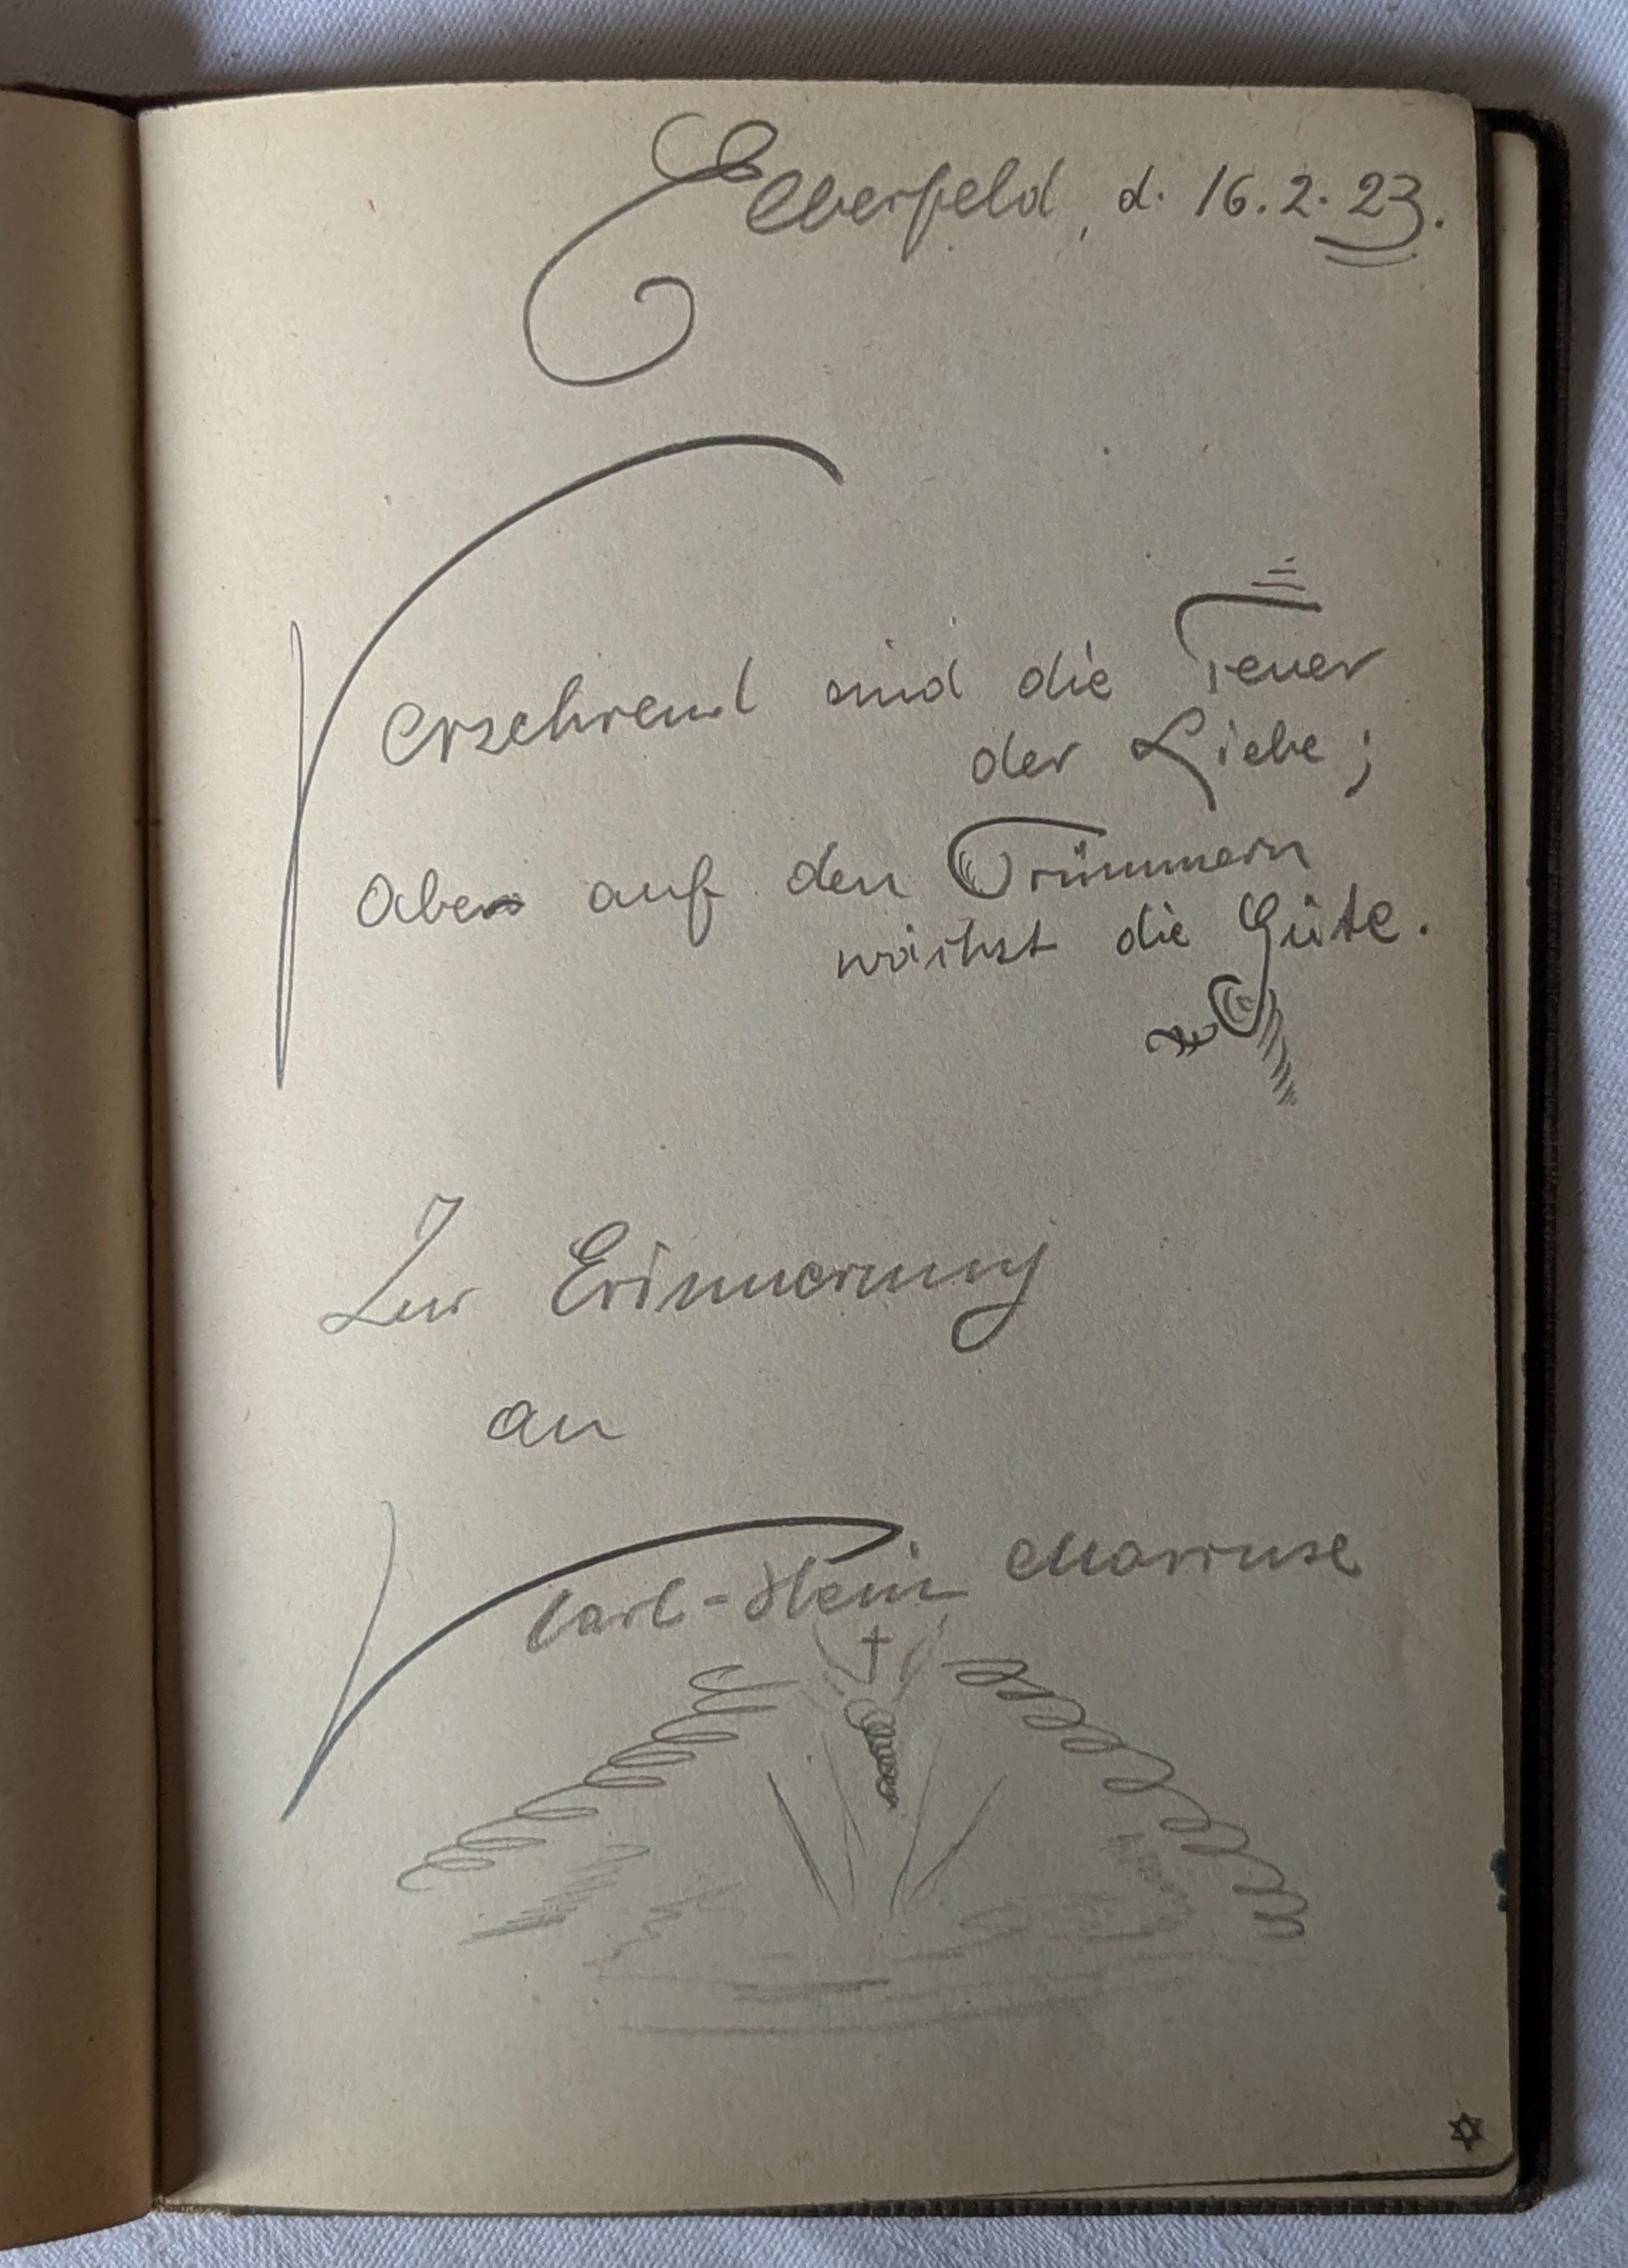 Elberfeld, d. 16.2.23.
Verzehrend sind die Feuer
der Liebe;
Aber auf den Trümmern
wächst die Güte.
Zur Erinnerung
an
Carl-Hein